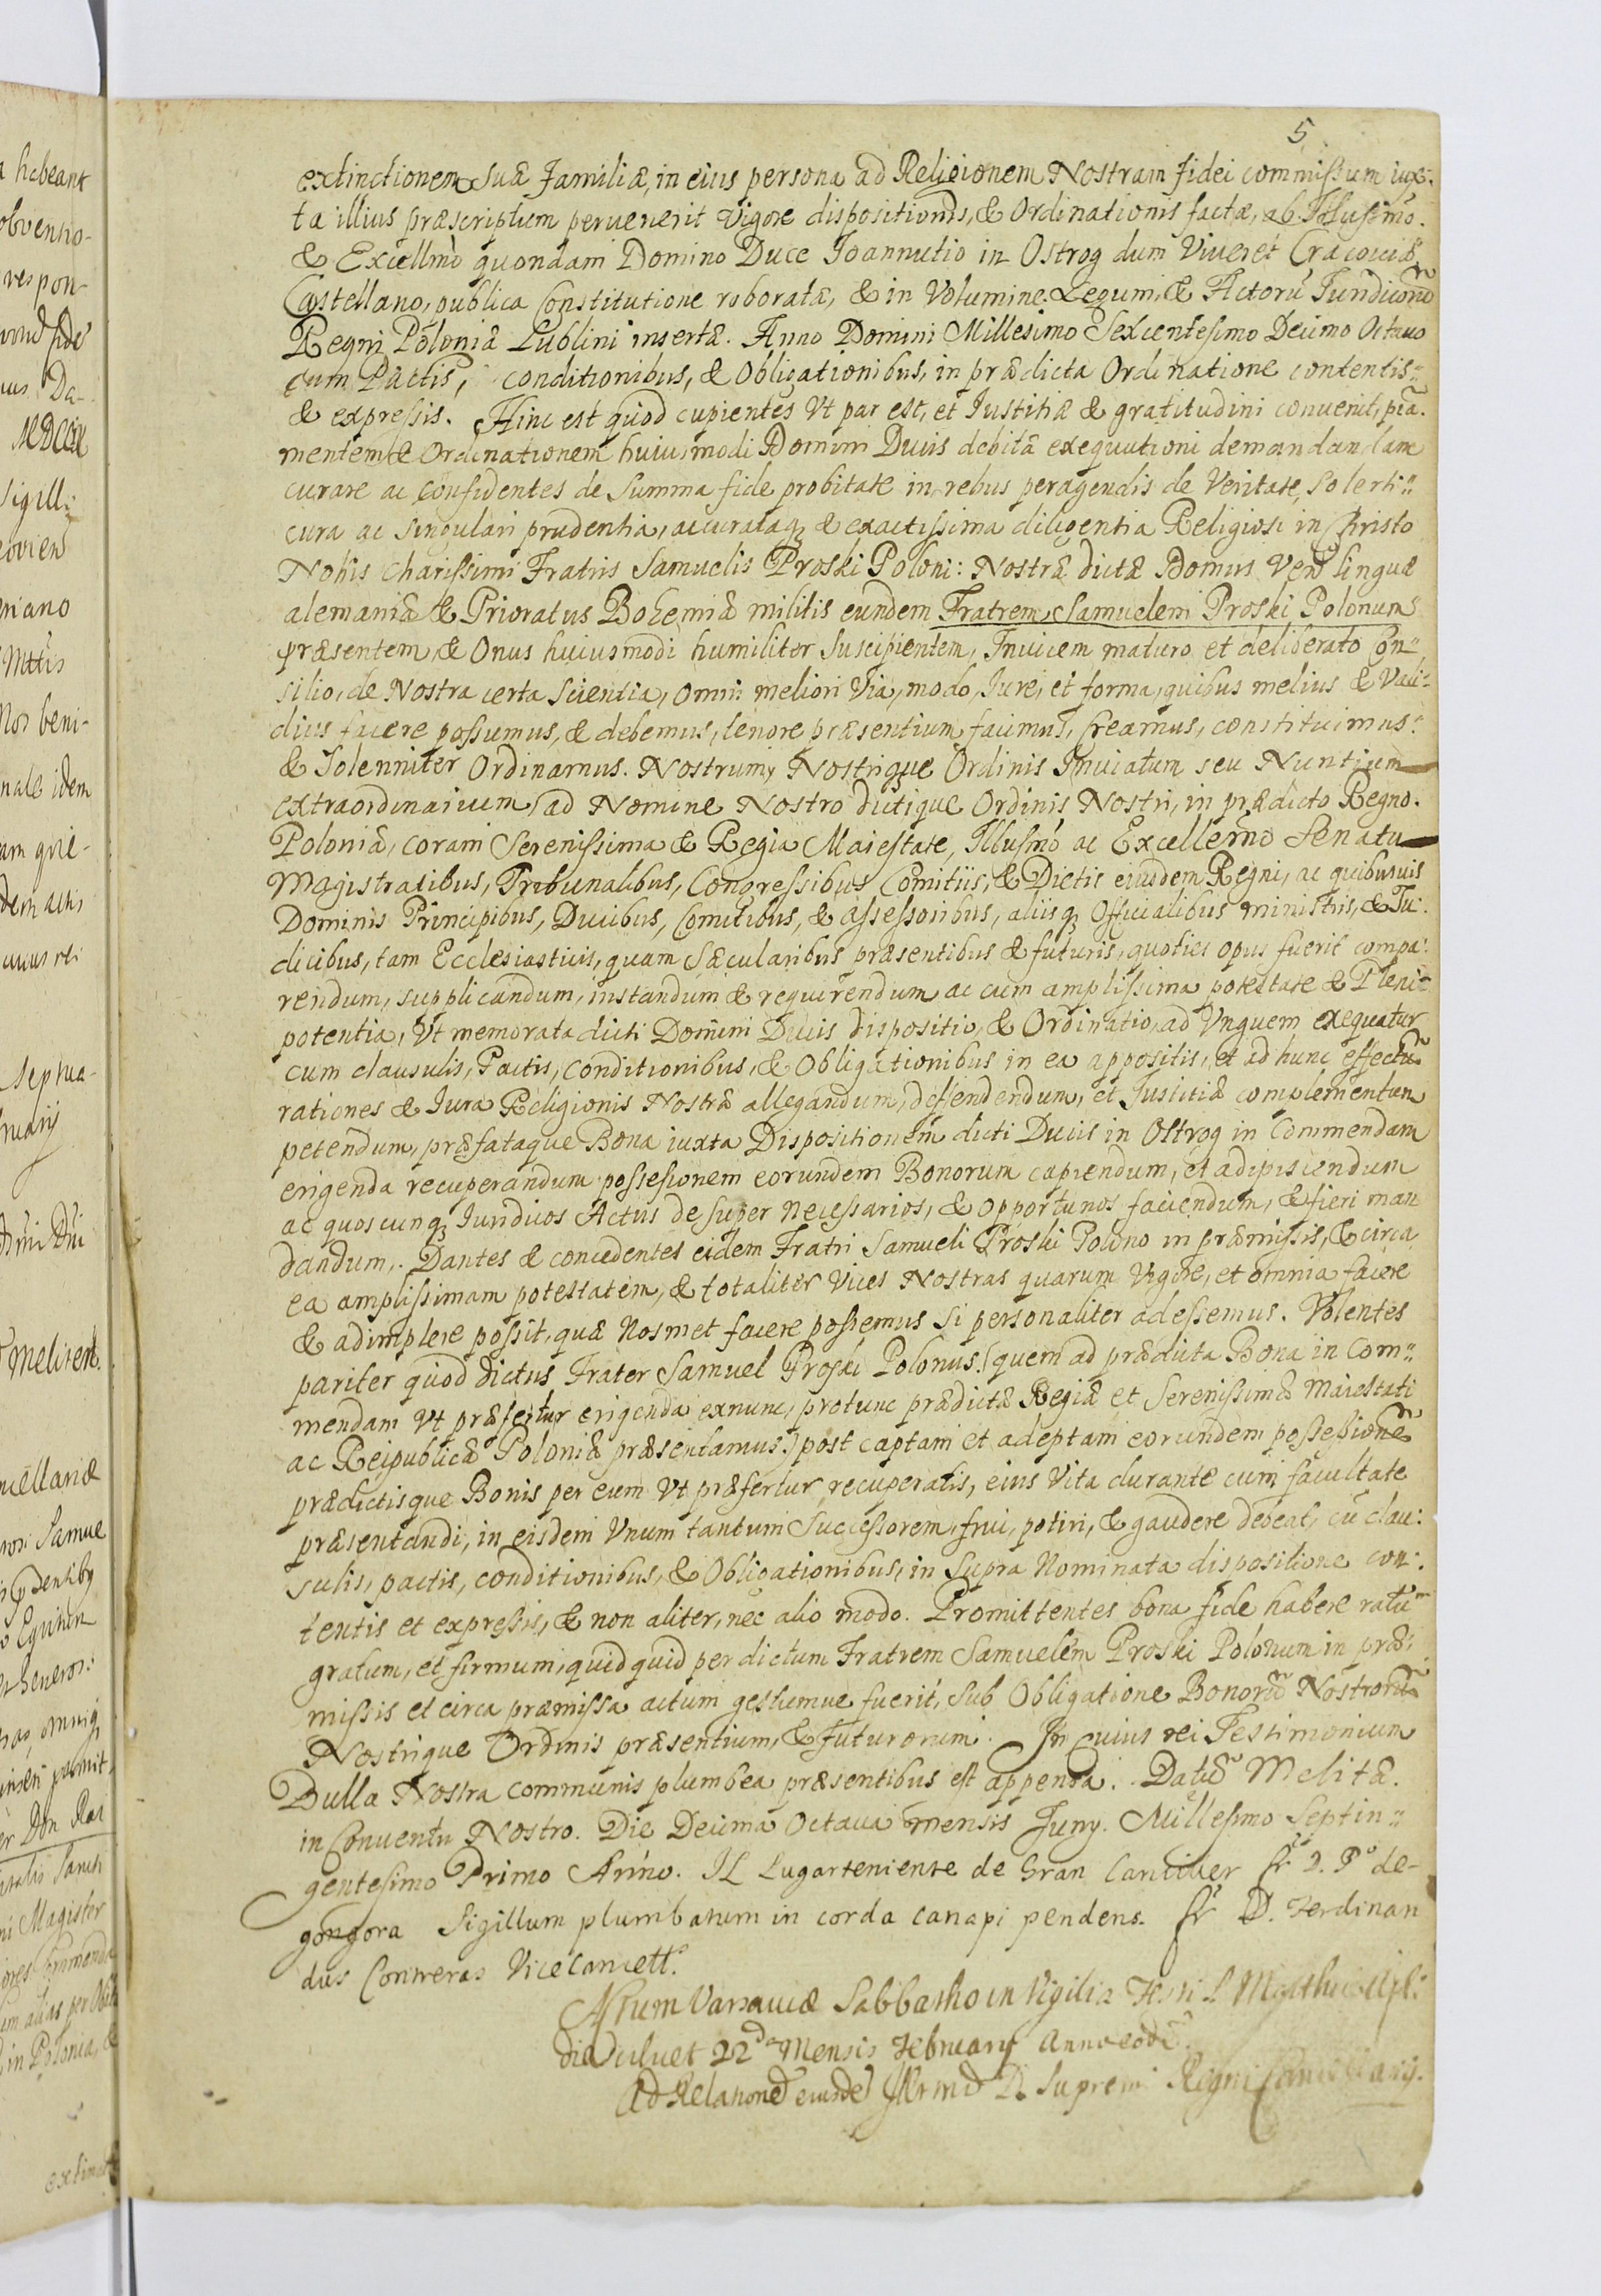 5
extinctionem suæ Familiæ, in eius persona ad Religionem Nostram fidei commissum iux-
ta illius præscriptum peruenerit vigore dispositionis, & Ordinationis factæ, ab Illusmo.
& Excellmo quondam Domino Duce Joannutio in Ostrog dum Viueret Cracouiæ
Castellano, publica Constitutione roboratæ, & in Volumine Legum, & Actorũ Juridicorũ
Regni Poloniæ Lublini insertæ. Anno Domini Millesimo Sexcentesimo Decimo Octauo
cum Pactis, conditionibus, & Obligationibus, in prædicta Ordinatione contentis
& expressis. Hinc est quod cupientes Vt par est, et Justitiæ & gratitudini conuenit, piã.
mentem & Ordinationem huiusmodi Domini Ducis debitæ exequutioni demandandam
curare ac confidentes de Summa fide probitate in rebus peragendis de Veritate, solerti
cura ac singulari prudentia, accurataq; & exactissima diligentia Religiosi in Christo
Nobis Charissimi Fratris Samuelis Proski Poloni: Nostræ dictæ Domus Ven linguæ
alemaniæ & Prioratus Bohemiæ militis eundem Fratrem Samuelem Proski Polonum
præsentem, & Onus huiusmodi humiliter suscipientem, Inuicem maturo et deliberato Con-
silio, de Nostra certa scientia, omni meliori Via, modo, Jure, et forma, quibus melius & Vali-
dius facere possumus, & debemus, tenore præsentium facimus, Creamus, constituimus
& Solenniter Ordinamus. Nostrum, Nostrique Ordinis Inuiatum seu Nuntium
extraordinarium, ad Nomine Nostro dictique Ordinis Nostri, in prædicto Regno.
Poloniæ, coram Serenissima & Regia Maiestate, Illusmo ac Excellemo Senatu
Magistratibus, Tribunalibus, Congressibus Comitiis, & Dietis eiusdem Regni, ac quibusuis
Dominis Principibus, Ducibus, Comitibus, & assessoribus, aliisq; Officialibus ministris, & Ju-
dicibus, tam Ecclesiasticis, quam Sæcularibus præsentibus & futuris, quoties opus fuerit compa-
rendum, supplicandum, instandum & requirendum, ac cum amplissima potestate & Pleni-
potentia, Vt memorata dicti Domini Ducis dispositio, & Ordinatio, ad Vnguem exequatur
cum clausulis, Pactis, conditionibus, & Obligationibus in ea appositis, et ad hunc effectũ
rationes & Jura Religionis Nostræ allegandum, deffendendum, et Justitiæ complementum
petendum, præfataque Bona iuxta Dispositionem dicti Ducis in Ostrog in Commendam
erigenda recuperandum possesionem eorundem Bonorum capiendum, et adipiscendum
ac quoscunq; Juridicos Actus desuper necessarios, & opportunos faciendum, & fieri man
dandum,. Dantes & concedentes eidem Fratri Samueli Proski Polono in præmissis, & circa
ea amplissimam potestatem, & totaliter Vices Nostras quarum Vigore, et omnia facere
& adimplere possit, quæ Nosmet facere possemus si personaliter adessemus. Volentes
pariter quod dictus Frater Samuel Proski Polonus. (quem ad prædicta Bona in Com-
mendam Vt præfertur erigenda exnunc, protunc prædictæ Regiæ et Serenissimæ Maiestati
ac Reipublicæ Poloniæ præsentamus.) post captam et adeptam eorundem possessionẽ
prædictisque Bonis per eum Vt præfertur recuperatis, eius Vita durante cum facultate
præsentandi, in eisdem Vnum tantum Successorem, frui, potiri, & gaudere debeat, cũ clau:
sulis, pactis, conditionibus, & Obligationibus, in supra Nominata dispositione con:
tentis et expressis, & non aliter, nec alio modo. Promittentes bona fide habere ratũ
gratum, et firmum, quidquid per dictum Fratrem Samuelem Proski Polonum in præ:
missis et circa præmissa actum gestumue fuerit, sub Obligatione Bonorũ Nostrorũ
Nostrique Ordinis præsentium, & futurorum. In cuius rei Testimonium
Bulla Nostra communis plumbea præsentibus est appensa. Datũ Melitæ.
in Conuentu Nostro. Die Decima Octaua mensis Juny. Millesimo Septin-
gentesimo Primo Anno. IL Lugarteniente de Gran Canciller fr D. Po de-
gongora Sigillum plumbatum in corda canapi pendens. fr D. Ferdinan
dus Contreras Vicecancell.
Actum Varsauiæ Sabbatho in Vigilia Festi S Matthiæ Apl:
die scilicet 22da Mensis February Anno eodẽ
Ad Relationẽ eiusdẽ Illrmi D. Supremi Regni Cancellarij.